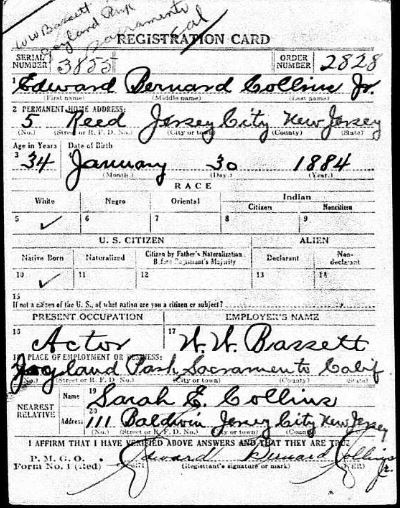 W W Bassett
Joyland Park
Sacramento
Cal
REGISTRATION CARD
SERIAL NUMBER 3855 ORDER NUMBER 2828
Edward Bernard Collins Jr.
(First name) (Middle name) (Last name)
2 PERMANENT HOME ADDRESS:
5 Reed Jersey City New Jersey
(No.) (Street or R. F. D. No.) (City or town) (County) (State)
Age in Years Date of Birth
3 34 January 30 1884
(Month.) (Day.) (Year.)
RACE
White Negro Oriental Indian
Citizen Noncitizen
5 ✓ 6 7 8 9
U. S. CITIZEN ALIEN
Native Born Naturalized Citizen by Father's Naturalization Before Registrant's Majority Declarant Non-declarant
10 ✓ 11 12 13 14
15
If not a citizen of the U. S., of what nation are you a citizen or subject?
PRESENT OCCUPATION EMPLOYER'S NAME
16 Actor 17 W. W. Bassett
18 PLACE OF EMPLOYMENT OR BUSINESS:
Joyland Park Sacramento Calif
(No.) (Street or R. F. D. No.) (City or town) (County) (State)
NEAREST RELATIVE
Name 19 Sarah E. Collins
Address 20 111 Baldwin Jersey City New Jersey
(No.) (Street or R. F. D. No.) (City or town) (County) (State)
I AFFIRM THAT I HAVE VERIFIED ABOVE ANSWERS AND THAT THEY ARE TRUE
P. M. G. O.
Form No. 1 (Red) Edward Bernard Collins Jr.
(Registrant's signature or mark) (OVER)